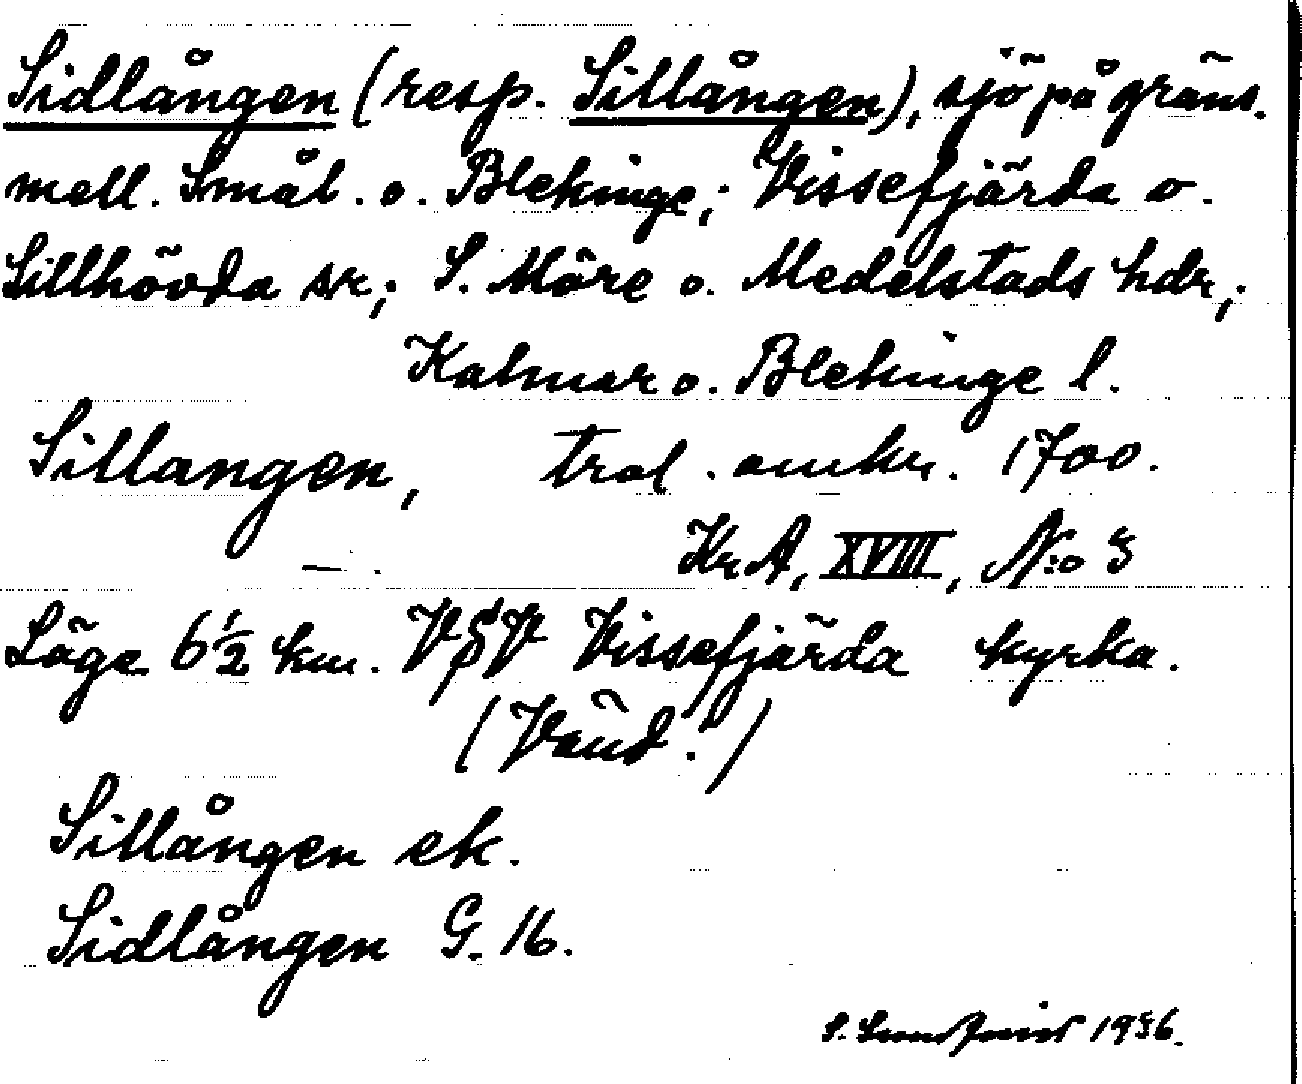 Sidlången (resp. Sillången), sjö på gräns.
mell. Smål. o. Blekinge; Vissefjärda o.
Sillhövda sr; S. Möre o. Medelstads hdr;
Kalmar o. Blekinge l.
Sillangen, trol. omkr. 1700.
KrA, XVIII, N:o 3
Läge 6 1/2 km. VSV Vissefjärda kyrka.
(Vänd!)
Sillången ek.
Sidlången G. 16.
S. 1936.